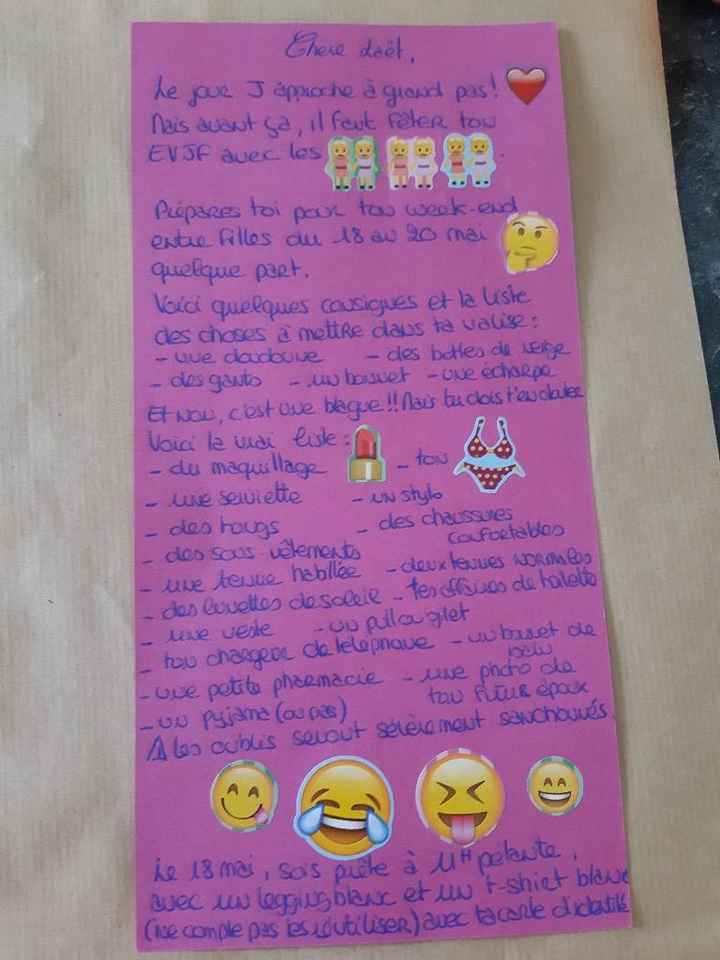 Chere daët,
Le jour J approche à grand pas!
Mais avant ça, il faut fêter ton
EVJF avec les
Prépares toi pour ton week-end
entre filles du 18 au 20 mai
quelque part.
Voici quelques consignes et la liste
des choses à mettre dans ta valise :
- une doudoune - des bottes de neige
- des gants - un bonnet - une écharpe
Et non, c'est une blague!! Mais tu dois t'en douter
Voici la vrai liste :
- du maquillage - ton
- une serviette - un stylo
- des tongs - des chaussures confortables
- des sous-vêtements
- une tenue habillée - deux tenues normales
- des lunettes de soleil - tes affaires de toilette
- une veste - un pull ou gilet
- ton chargeur de téléphone - un bonnet de bain
- une petite pharmacie - une photo de ton futur époux
- un pyjama (ou pas)
⚠ les oublis seront sévèrement sanctionnés.
Le 18 mai, sois prête à 11H pétante,
avec un legging blanc et un t-shirt blanc
(ne compte pas les réutiliser) avec ta carte d'identité